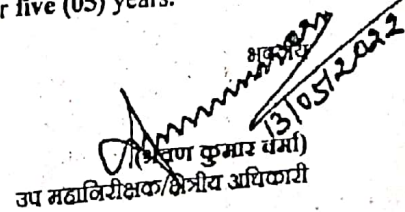 r five (05) years.
भवदीय
13/05/2022
(श्रवण कुमार वर्मा)
उप महानिरीक्षक/क्षेत्रीय अधिकारी